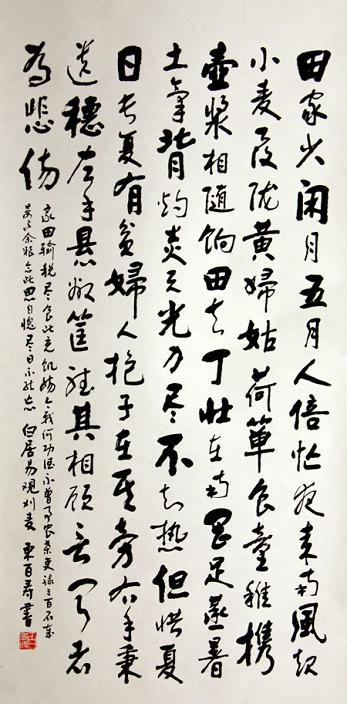 田家少闲月五月人倍忙夜来南風起
小麦覆陇黄婦姑荷箪食童稚携
壺漿相随饷田去丁壮在南冈足蒸暑
土氣背灼炎天光力尽不知热但惜夏
日长复有贫婦人抱子在其旁右手秉
遗穗左手悬敝筐听其相顾言闻者
為悲伤
家田输税尽食此充饥肠今我何功德不曾事农桑吏禄三百石岁
晏有余粮念此思自愧尽日不能忘 白居易观刈麦 東百寿書